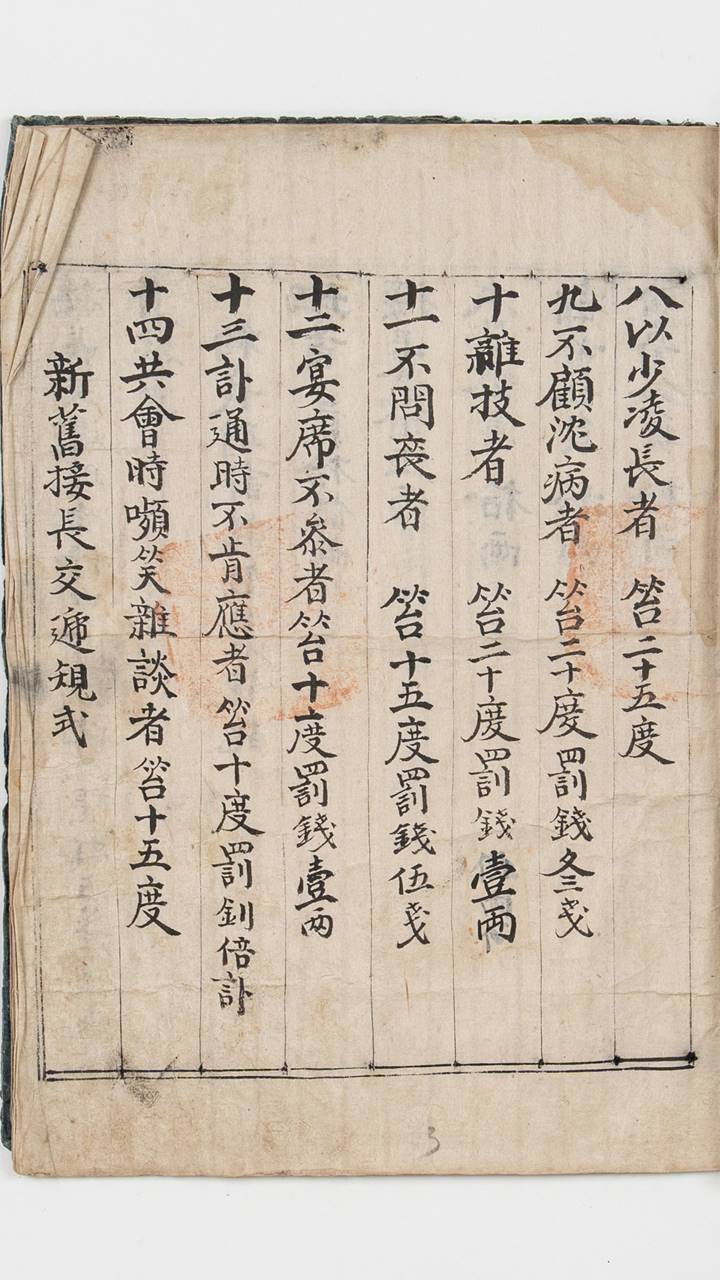 八以少凌長者 笞二十五度
九不顧沈病者 笞二十度罰錢叄戔
十離技者 笞二十度罰錢壹兩
十一不問喪者 笞十五度罰錢伍戔
十二宴席不參者笞十度罰錢壹兩
十三訃通時不肯應者笞十度罰釗倍訃
十四共會時嚬笑雜談者笞十五度
新舊接長交遞規式
3